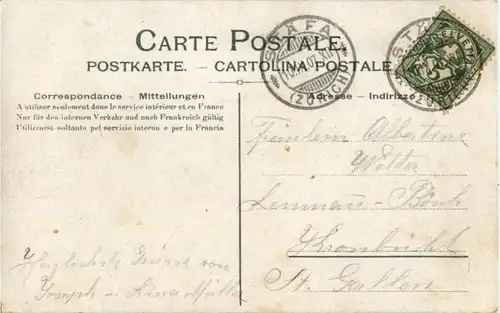 CARTE POSTALE.
POSTKARTE. - CARTOLINA POSTALE
Correspondance - Mitteilungen
A utiliser seulement dans le service intérieur et en France
Nur für den internen Verkehr und nach Frankreich gültig
Utilizzarsi soltanto pel servizio interno e per la Francia
Adresse - Indirizzo
STÄFA
(ZÜRICH)
HELVETIA
5
Fräulein Albertine
Kronbühl
St. Gallen
Herzlichste Grüsse von
Joseph u. Lina Müller